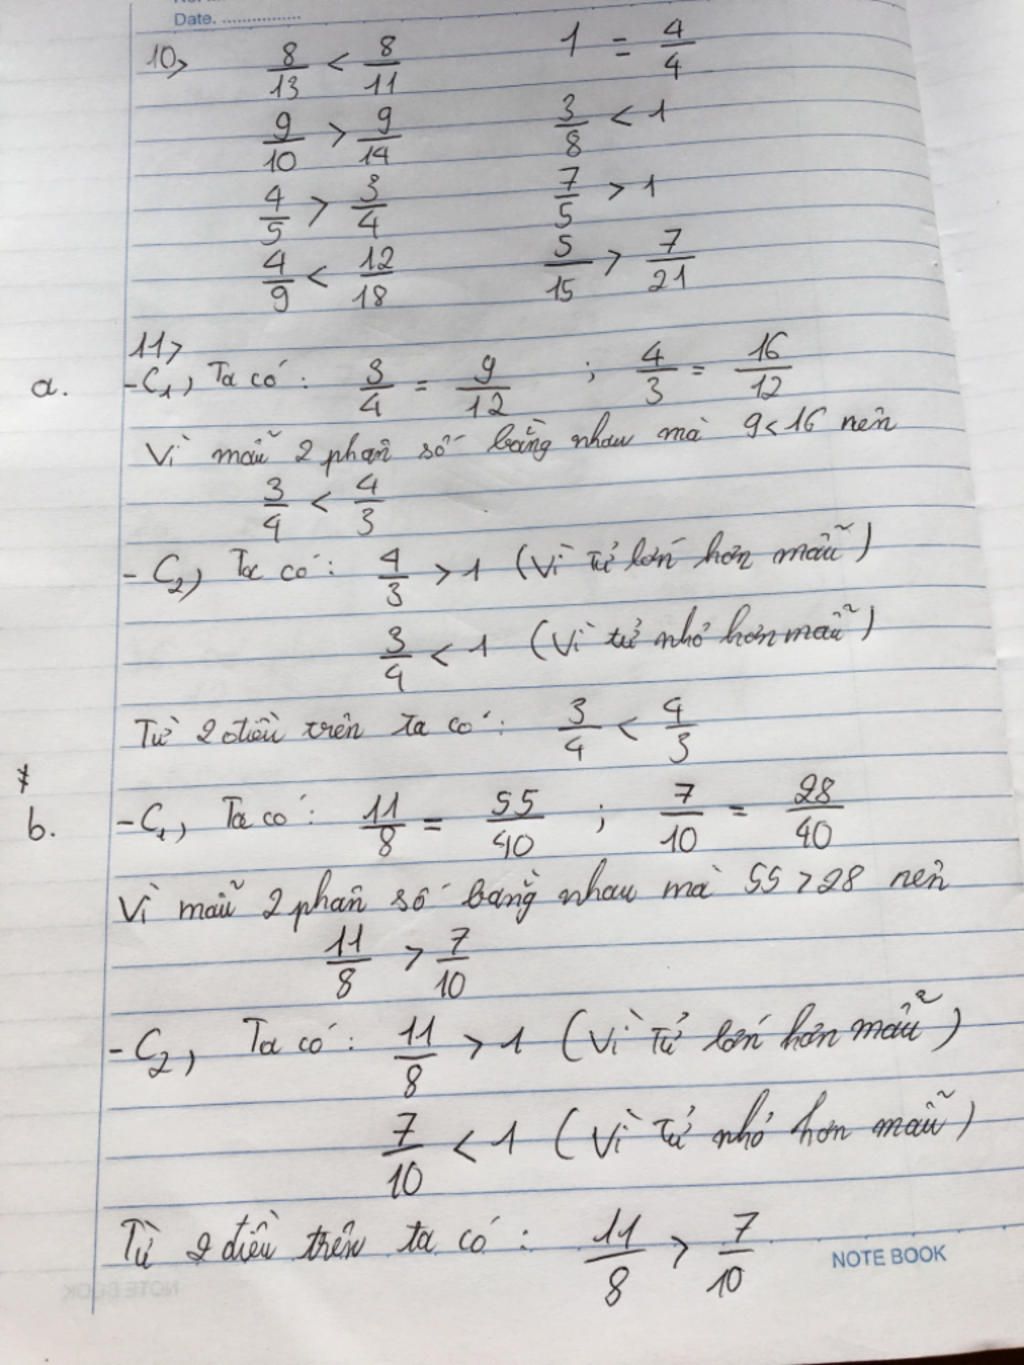 Date. ................
10> 8/13 < 8/11 1 = 4/4
9/10 > 9/14 3/8 < 1
4/5 > 3/4 7/5 > 1
4/9 < 12/18 5/15 > 7/21
11>
a. - C1, Ta có: 3/4 = 9/12 ; 4/3 = 16/12
Vì mẫu 2 phân số bằng nhau mà 9 < 16 nên
3/4 < 4/3
- C2, Ta có: 4/3 > 1 (Vì tử lớn hơn mẫu)
3/4 < 1 (Vì tử nhỏ hơn mẫu)
Từ 2 điều trên ta có: 3/4 < 4/3
b. - C1, Ta có: 11/8 = 55/40 ; 7/10 = 28/40
Vì mẫu 2 phân số bằng nhau mà 55 > 28 nên
11/8 > 7/10
- C2, Ta có: 11/8 > 1 (Vì tử lớn hơn mẫu)
7/10 < 1 (Vì tử nhỏ hơn mẫu)
Từ 2 điều trên ta có: 11/8 > 7/10
NOTE BOOK